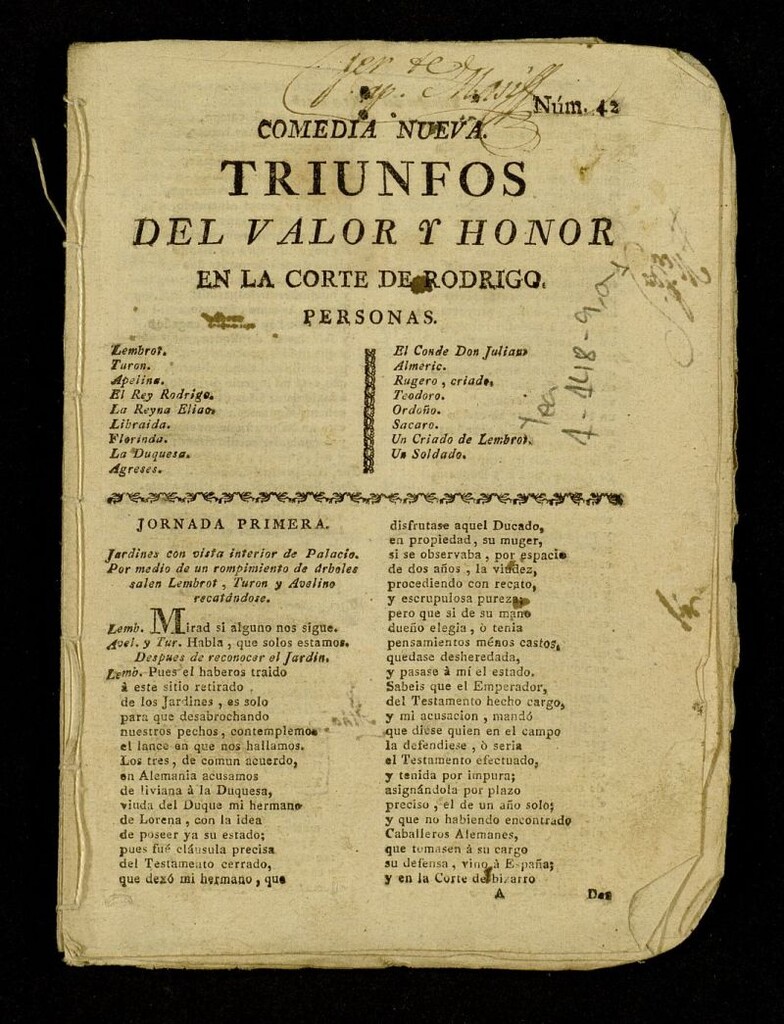 Núm. 42
COMEDIA NUEVA.
TRIUNFOS
DEL VALOR Y HONOR
EN LA CORTE DE RODRIGO.
PERSONAS.
Lembrot.
Turon.
Apelino.
El Rey Rodrigo.
La Reyna Eliao.
Libraida.
Florinda.
La Duquesa.
Agreses.
El Conde Don Julian.
Almeric.
Rugero, criado.
Teodoro.
Ordoño.
Sacaro.
Un Criado de Lembrot.
Un Soldado.
JORNADA PRIMERA.
Jardines con vista interior de Palacio.
Por medio de un rompimiento de árboles
salen Lembrot, Turon y Avelino
recatándose.
Lemb. Mirad si alguno nos sigue.
Avel. y Tur. Habla, que solos estamos.
Despues de reconocer el Jardin.
Lemb. Pues el haberos traido
à este sitio retirado
de los Jardines, es solo
para que desabrochando
nuestros pechos, contemplemos
el lance en que nos hallamos.
Los tres, de comun acuerdo,
en Alemania acusamos
de liviana à la Duquesa,
viuda del Duque mi hermano
de Lorena, con la idea
de poseer ya su estado;
pues fué cláusula precisa
del Testamento cerrado,
que dexó mi hermano, que
disfrutase aquel Ducado,
en propiedad, su muger,
si se observaba, por espacio
de dos años, la viudez,
procediendo con recato,
y escrupulosa pureza;
pero que si de su mano
dueño elegia, ò tenia
pensamientos ménos castos,
quedase desheredada,
y pasase à mí el estado.
Sabeis que el Emperador,
del Testamento hecho cargo,
y mi acusacion, mandó
que diese quien en el campo
la defendiese, ò seria
el Testamento efectuado,
y tenida por impura;
asignándola por plazo
preciso, el de un año solo;
y que no habiendo encontrado
Caballeros Alemanes,
que tomasen à su cargo
su defensa, vino à España;
y en la Corte del bizarro
A